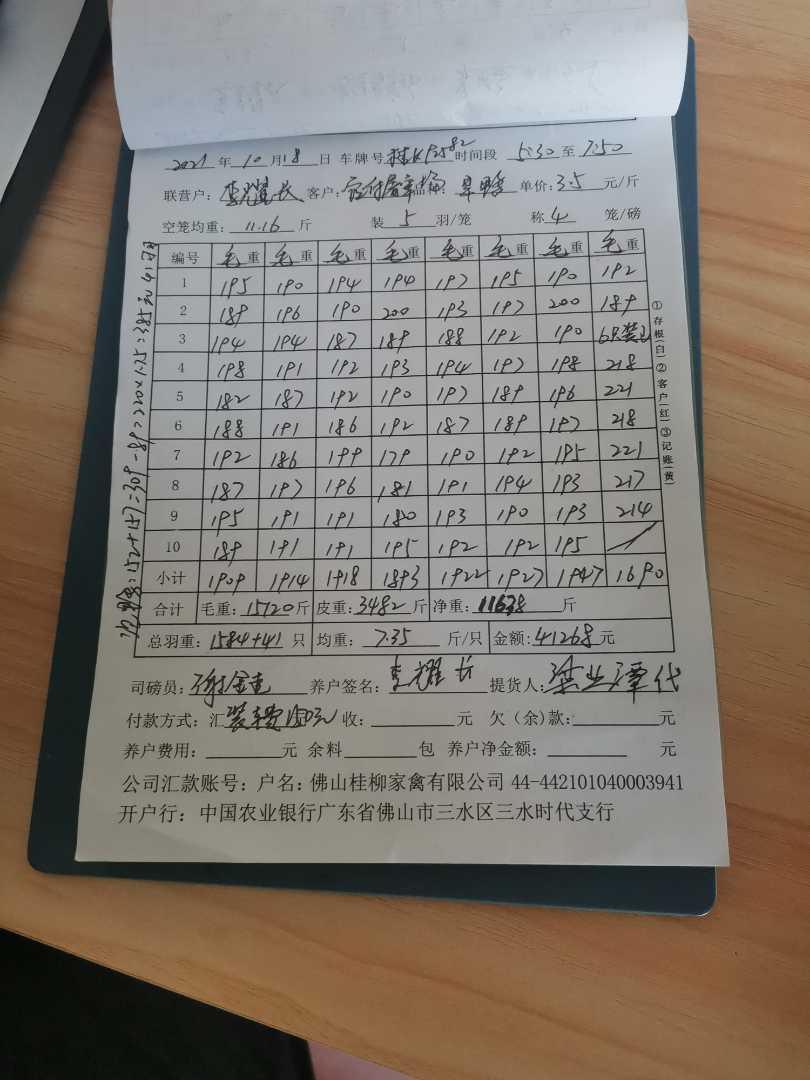 2021 年 10 月 18 日 车牌号 桂KP2582 时间段 5:30 至 7:50
联营户: 李耀长 客户: 品种: 旱鸭 单价: 3.5 元/斤
空笼均重: 11.16 斤 装 5 羽/笼 称 4 笼/磅
编号 毛重 毛重 毛重 毛重 毛重 毛重 毛重 毛重
1 195 190 194 194 197 195 190 192
2 189 196 190 200 193 197 200 189
3 194 194 187 189 188 192 190 6只装
4 198 191 192 193 194 197 198 218
5 182 187 192 190 197 189 196 221
6 188 191 186 192 187 189 197 218
7 192 186 199 179 190 192 195 221
8 187 197 196 181 191 194 193 217
9 195 191 191 180 193 190 193 214
10 189 191 191 195 192 192 195
小计 1909 1914 1918 1893 1922 1927 1947 1690
合计 毛重: 15120 斤 皮重: 3482 斤 净重: 11638 斤
总羽重: 1584+41 只 均重: 7.35 斤/只 金额: 41268 元
司磅员: 养户签名: 李耀长 提货人: 代
付款方式: 汇 装车费150元 收: 元 欠(余)款: 元
养户费用: 元 余料 包 养户净金额: 元
公司汇款账号: 户名: 佛山桂柳家禽有限公司 44-442101040003941
开户行: 中国农业银行广东省佛山市三水区三水时代支行
①存根(白)②客户(红)③记账(黄)
152+157=309-89=220×1.75=385元 41只